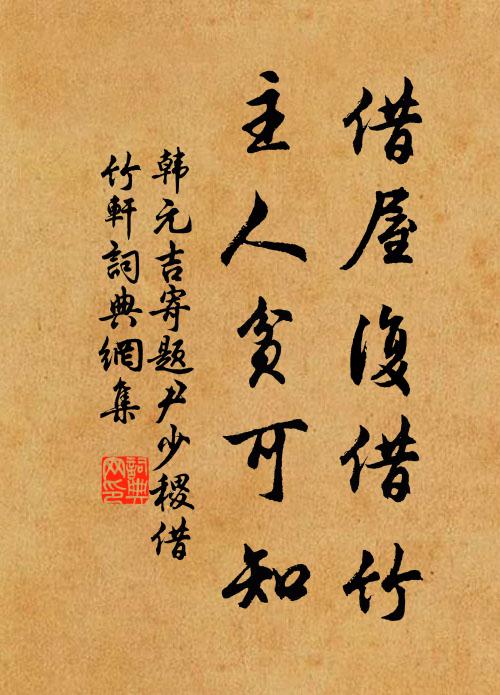 借屋復借竹
主人貧可知
韩元吉寄题尹少稷借
竹軒詞典網集
詞典网印